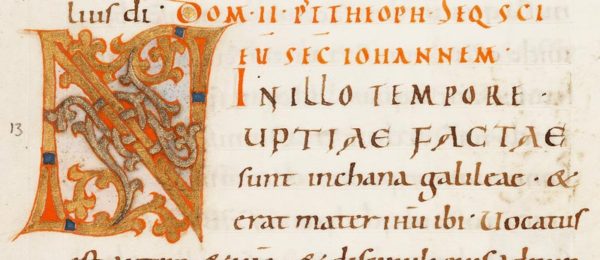 lius di · DOM · II · P̄ THEOPH · SEQ SCI
EU SEC̄ IOHANNEM
IN ILLO TEMPORE ·
13
NUPTIAE FACTAE
sunt inchana galileae · &
erat mater ihū ibi · Uocatus